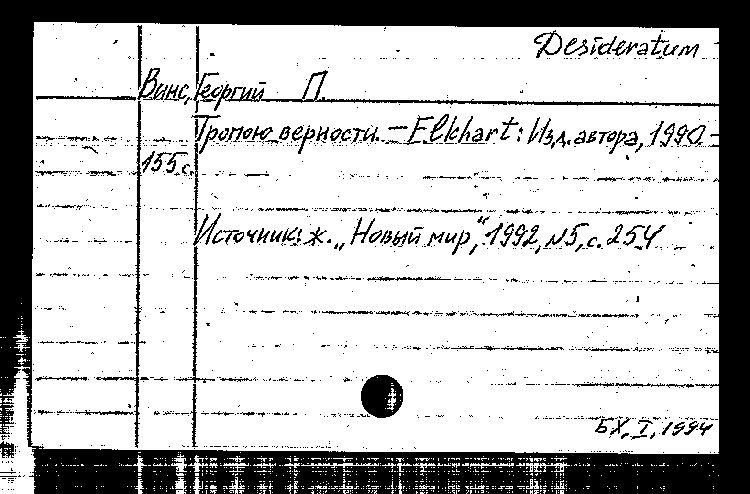 Desideratum
Винс, Георгий П.
Тропою верности. — Elkhart: Изд. автора, 1990 —
155 с.
Источник: ж. „Новый мир“, 1992, N5, с. 254
БХ, I, 1994